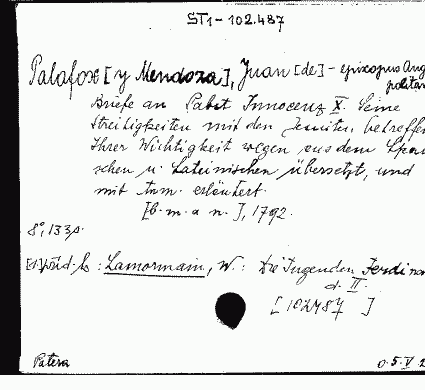 ST1-102.487
Palafox [y Mendoza], Juan [de] - episcopus Ang
politan
Briefe an Pabst Innocenz X. Seine
Streitigkeiten mit den Jesuiten betreffen
Ihrer Wichtigkeit wegen aus dem Span
schen u. Lateinischen übersetzt, und
mit Anm. erläutert.
[b. m. a n.], 1792.
8°, 133 s.
Lamormain, W.: Die Tugenden Ferdinan
d. II.
[102487 ]
Patera
0.5.V.2